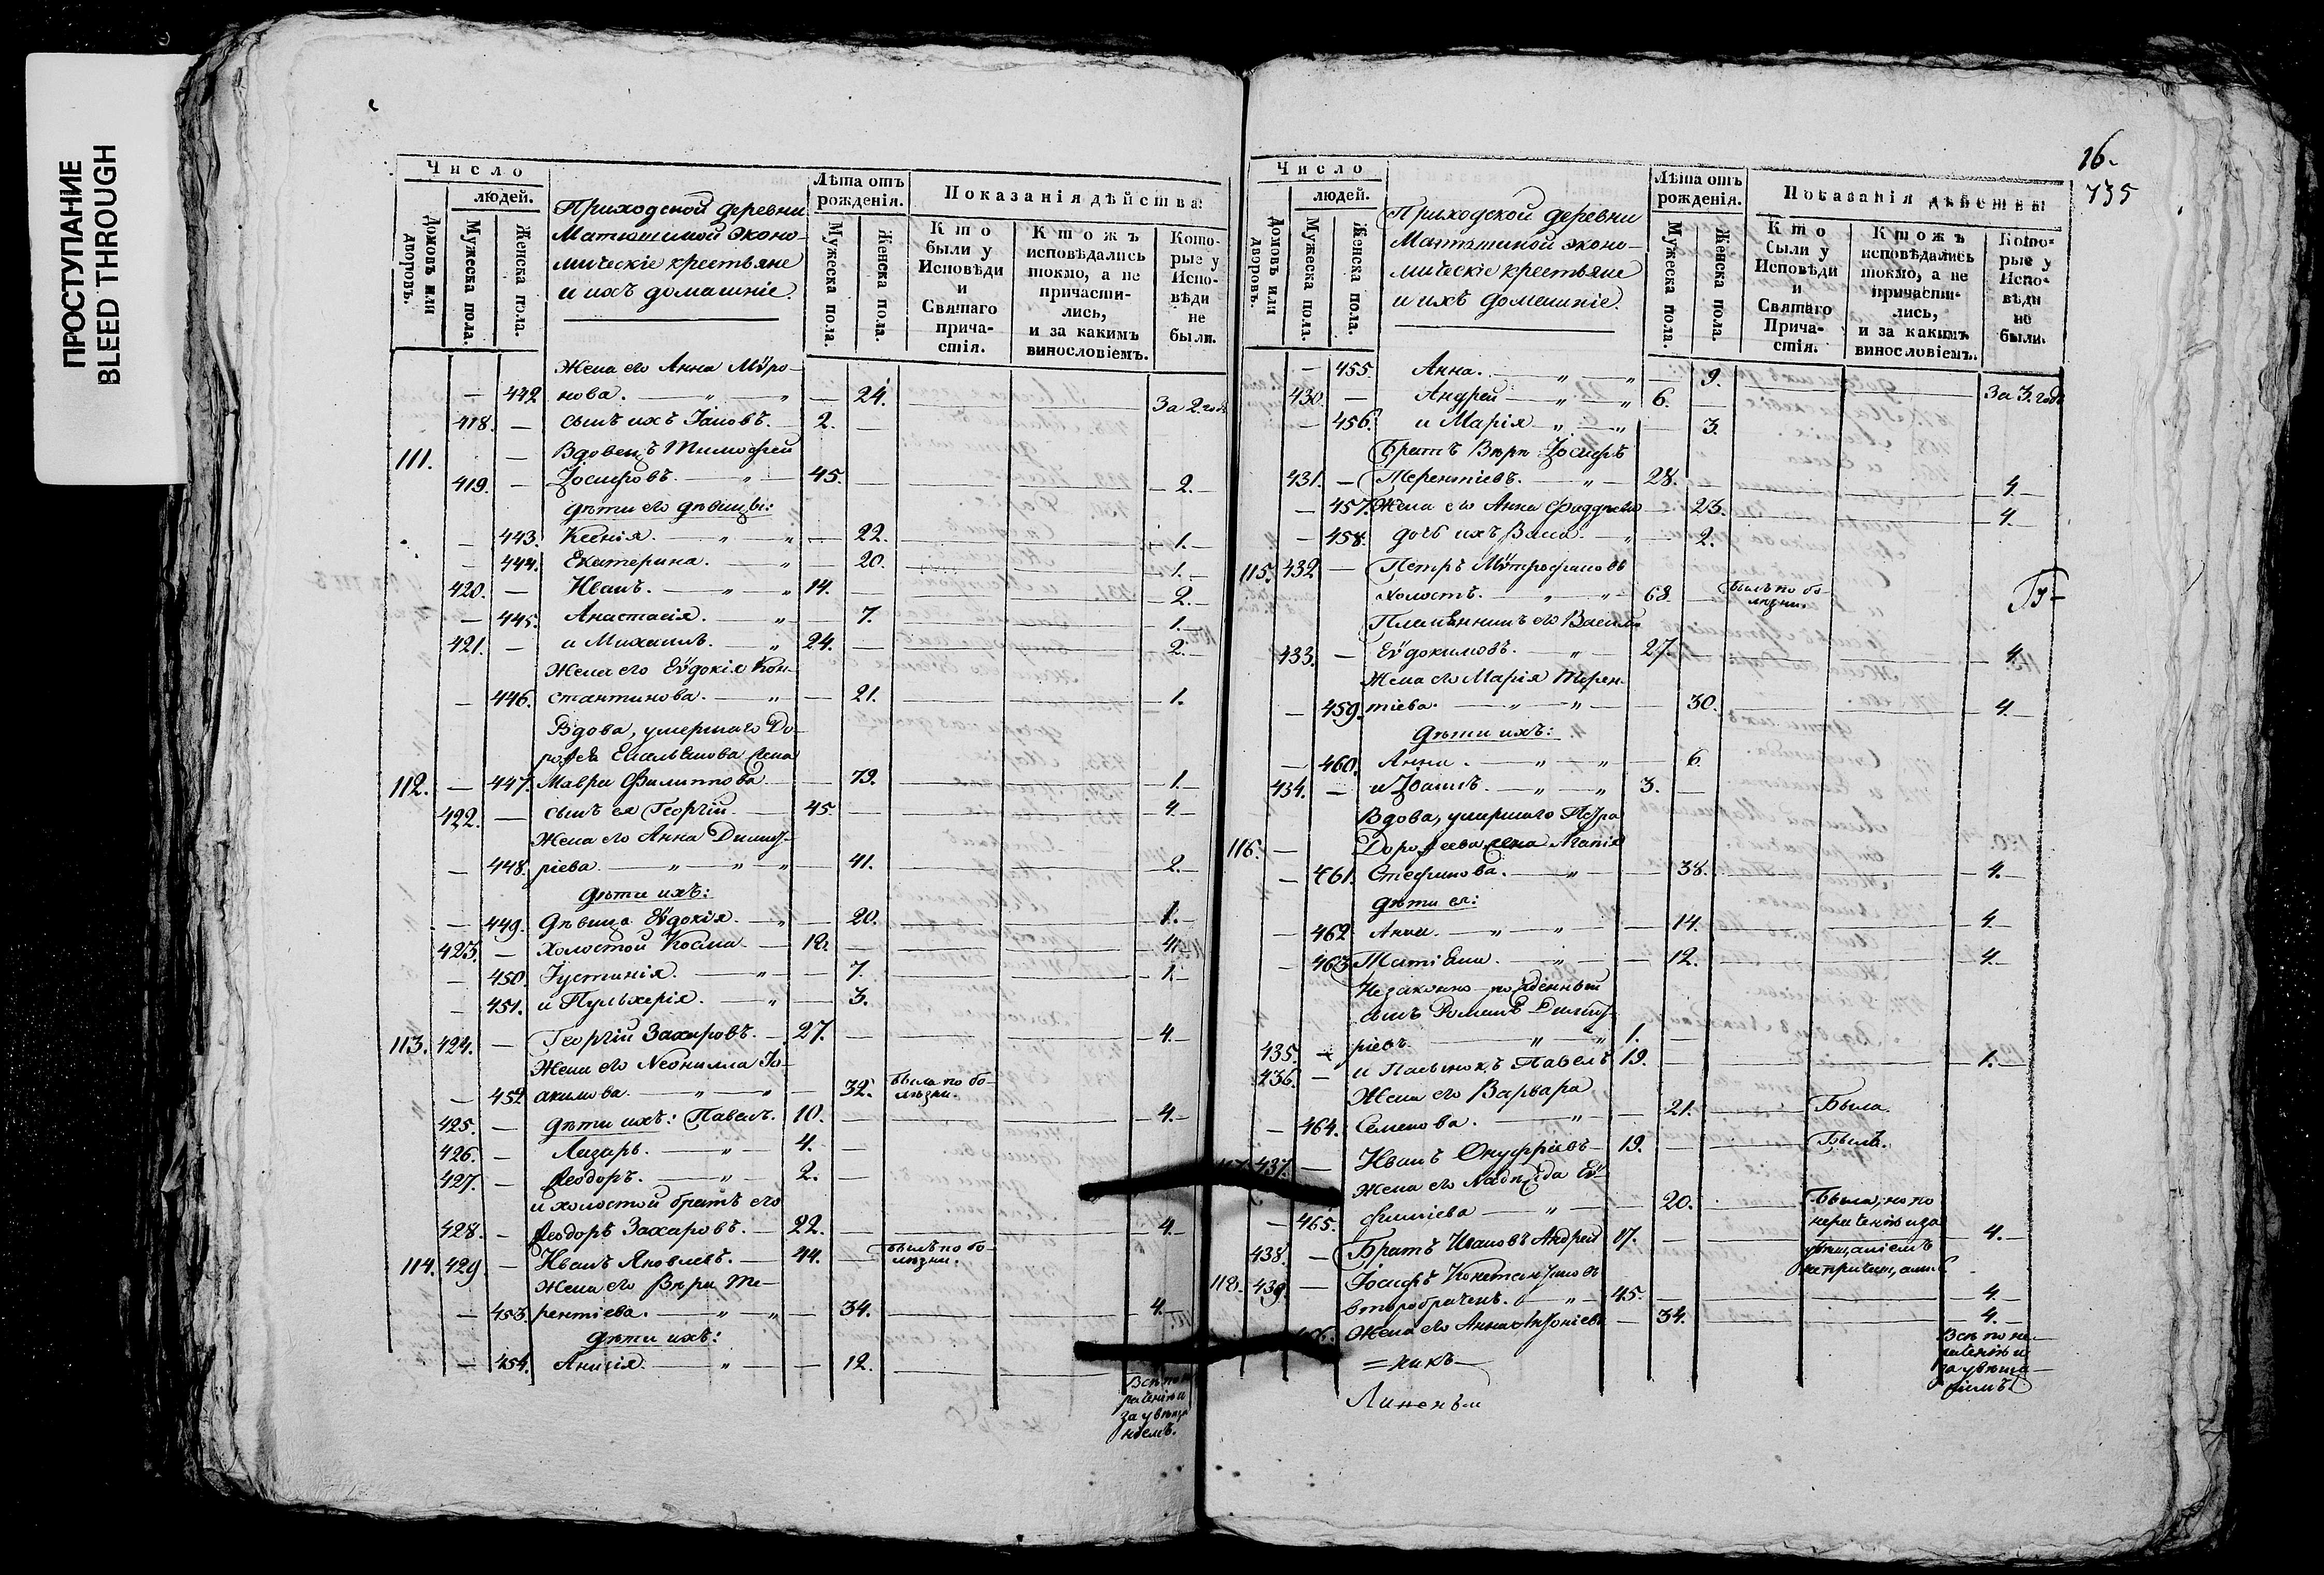 ПРОСТУПАНИЕ
BLEED THROUGH
Число
людей.
Домовъ или дворовъ.
Мужеска пола.
Женска пола.
Приходской деревни
Матюшиной эконо-
мическіе крестьяне
и ихъ домашніе.
Лѣта отъ рожденія.
Мужеска пола.
Женска пола.
Показанія дѣйства:
Кто были у Исповѣди и Святаго причастія.
Ктожъ исповѣдались токмо, а не причастились, и за какимъ винословіемъ.
Которые у Исповѣди не были.
Жена его Анна Мѵро-
— 442 нова. — 24. За 2. года
418. — сынъ ихъ Іаковъ. 2. —
111. — Вдовецъ Тимофей
419. — Іосифовъ. 45. — 2.
дѣти его дѣвицы:
— 443. Ксенія. — 22. 1.
— 444. Екатерина. — 20. 1.
420. — Иванъ. 14. — 2.
— 445. Анастасія. — 7. 1.
421. — и Михаилъ. 24. — 2.
Жена его Еѵдокія Кон-
— 446. стантинова. — 21. 1.
Вдова, умершаго До-
роѳея Емельянова жена
112. — 447. Мавра Филиппова — 79. 1.
422. — сынъ ея Георгій. 45. — 4.
Жена его Анна Димит-
— 448. ріева — 41. 2.
дѣти ихъ:
— 449. дѣвица Еѵдокія. — 20. 1.
423. — холостой Косма. 18. — 4.
— 450. Іустинія. — 7. 1.
— 451. и Пульхерія. — 3.
113. 424. — Георгій Захаровъ. 27. — 4.
Жена его Неонилла Іо-
— 452 акимова. — 32. была по бо-
лѣзни.
425. — дѣти ихъ: Павелъ. 10. — 4.
426. — Лазарь. 4. —
427. — Ѳеодоръ. 2. —
и холостой братъ его
428. — Ѳеодоръ Захаровъ. 22. — 4.
114. 429. — Иванъ Яковлевъ. 44. — былъ по бо-
лѣзни.
Жена его Вѣра Те-
— 453. рентіева. — 34. 4.
дѣти ихъ:
— 454. Анисія. — 12.
Всѣ по не-
раченію и
за увѣща-
ніемъ.
16.
735
Число
людей.
Домовъ или дворовъ.
Мужеска пола.
Женска пола.
Приходской деревни
Матюшиной эконо-
мическіе крестьяне
и ихъ домашніе.
Лѣта отъ рожденія.
Мужеска пола.
Женска пола.
Показанія дѣйства
Кто были у Исповѣди и Святаго Причастія.
Ктожъ исповѣдались токмо, а не причастились, и за какимъ винословіемъ.
Которые у Исповѣди не были.
— 455. Анна. — 9. За 3. года
430. — Андрей 6. —
— 456. и Марія — 3.
Братъ Вѣры Іосифъ
431. — Терентіевъ. 28. — 4.
— 457. Жена его Анна Ѳаддѣева — 23. 4.
— 458. дочь ихъ Васса. — 2.
115. 432 — Петръ Мѵтрофановъ
холостъ. 68 — былъ по бо-
лѣзни.
Племянникъ его Василій
433. — Еѵдокимовъ. 27. — 4.
Жена его Марія Терен-
— 459. тіева. — 30. 4.
дѣти ихъ:
— 460. Анна. — 6.
434. — и Іоаннъ. 3. —
Вдова, умершаго Петра
116. — Дороѳеева жена Агапія
— 461. Стефанова. — 38. 4.
дѣти ея:
— 462 Анна. — 14. 4.
— 463 Татіана. — 12. 4.
Незаконно-рожденный
сынъ Романъ Димит-
435. — ріевъ 1. —
436. — и Пасынокъ Павелъ 19. — 1.
Жена его Варвара
— 464. Семенова. — 21. Была.
437. — Иванъ Онуфріевъ 19. — Былъ.
Жена его Надежда Еѵ-
— 465. фиміева — 20. Была, но по
нераченію и за
увѣщаніемъ
не причащалась
438. — Братъ Ивановъ Андрей 17. — 4.
118. 439. — Іосифъ Константиновъ
второбрачен. 45. — 4.
Жена его Анна Антоніева — 34. 4.
Всѣ по не-
раченію и
за увѣща-
ніемъ